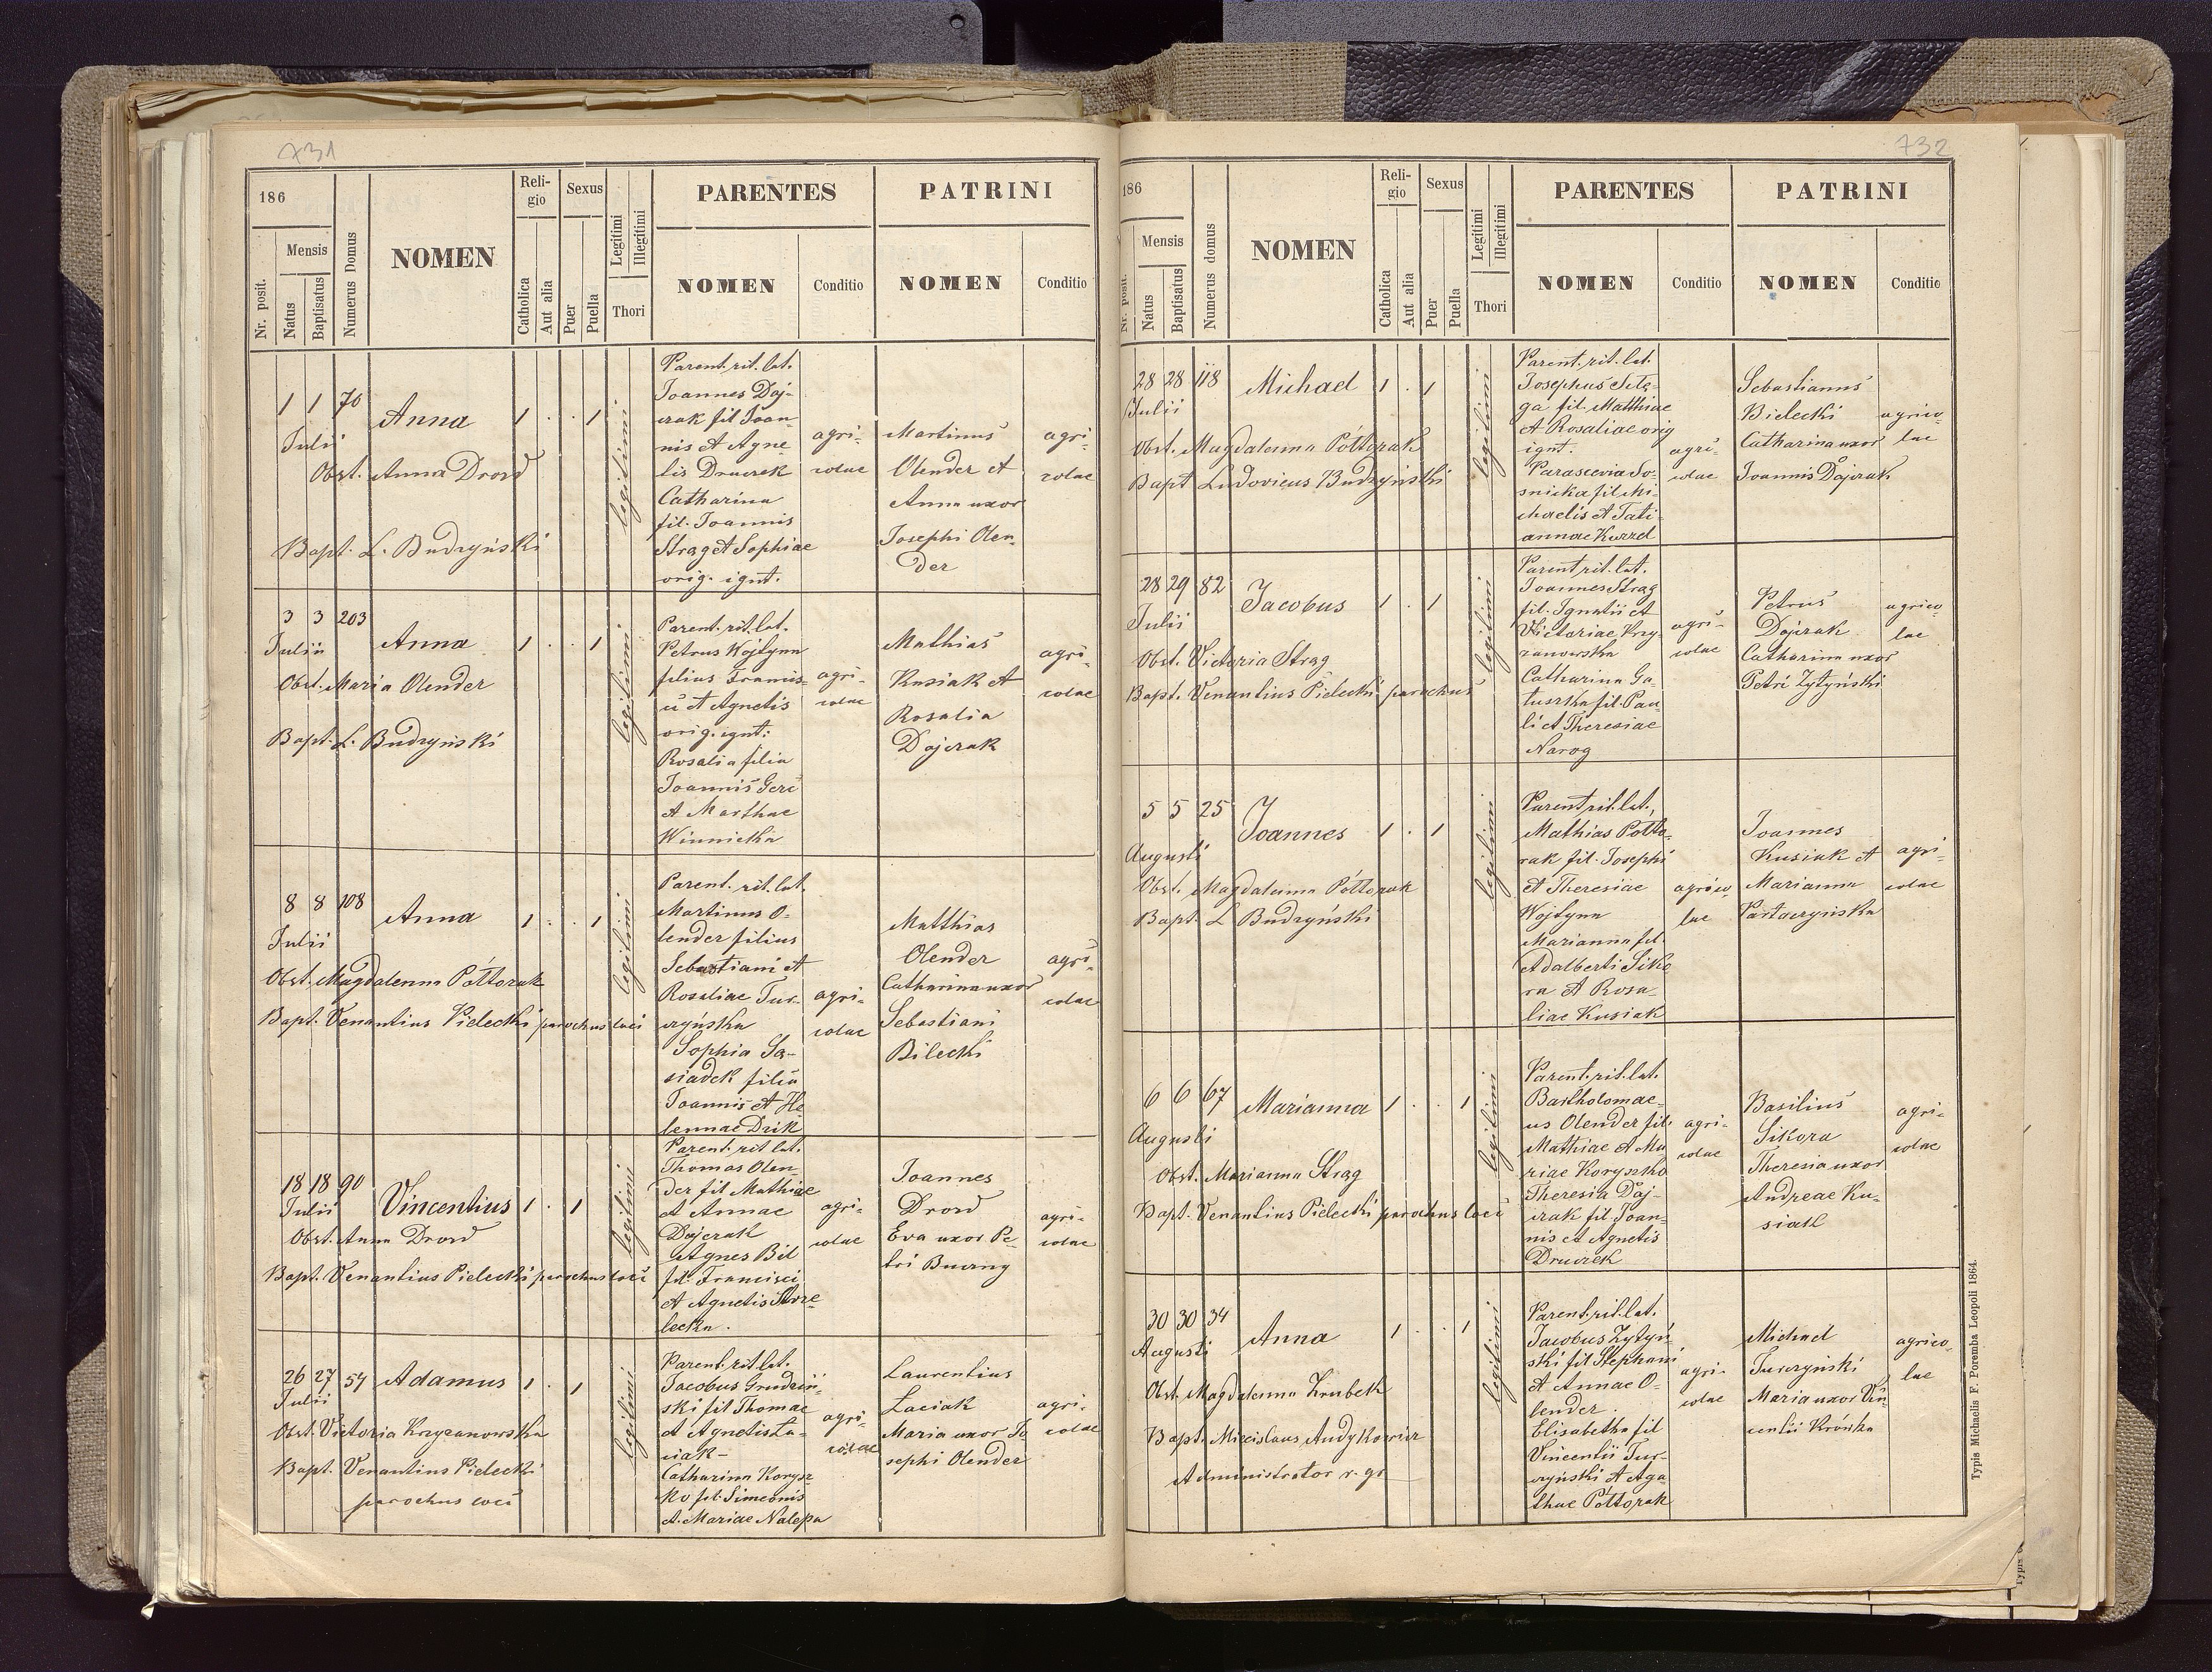 731
186
Nr. posit.
Mensis
Natus
Baptisatus
Numerus Domus
NOMEN
Religio
Catholica
Aut alia
Sexus
Puer
Puella
Legitimi
Illegitimi
Thori
PARENTES
NOMEN
Conditio
PATRINI
NOMEN
Conditio
1 1 70
Julii
Anna
1 . . 1
legitimi
Obst. Anna Drozd
Bapt. L. Budzyński
Parent. rit. lat.
Joannes Doj-
czak fil Joan-
nis et Agne-
tis Druczek
Catharina
fil. Joannis
Strag et Sophiae
orig. ignt.
agri-
colae
Martinus
Olender et
Anna uxor
Josephi Olen-
der
agri-
colae
3 3 203
Julii
Anna
1 . . 1
legitimi
Obst. Maria Olender
Bapt. L. Budzyński
Parent. rit. lat.
Petrus Wojtyna
filius Francis-
ci et Agnetis
orig. ignt:
Rosalia filia
Joannis Geri
et Marthae
Winnicka
agri-
colae
Mathias
Kusiak et
Rosalia
Dojczak
agri-
colae
8 8 108
Julii
Anna
1 . . 1
legitimi
Obst. Magdalenna Półtorak
Bapt. Venantius Pielecki parochus loci
Parent. rit. lat.
Martinus O-
lender filius
Sebastiani et
Rosaliae Tur-
czyńska
Sophia Sa-
siadek filia
Joannis et He-
lennae Dzik
agri-
colae
Matthias
Olender
Catharina uxor
Sebastiani
Bilecki
agri-
colae
18 18 90
Julii
Vincentius
1 . 1
legitimi
Obst. Anna Drozd
Bapt. Venantius Pielecki parochus loci
Parent. rit lat.
Thomas Olen-
der fil Mathiae
et Annae
Dojczak
Agnes Bil
fil. Francisci
et Agnetis Strze-
lecka.
agri-
colae
Joannes
Drozd
Eva uxor Pe-
tri Buczny
agri-
colae
26 27 54
Julii
Adamus
1 . 1
legitimi
Obst. Victoria Krzyzanowska
Bapt. Venantius Pielecki
parochus loci
Parent. rit lat.
Jacobus Grudziń-
ski fil Thomae
et Agnetis La-
ciak-
Catharina Korysz
ko fil. Simeonis
et Mariae Nalepa
agri-
colae
Laurentius
Laciak
Maria uxor Jo
sephi Olender
agri-
colae
732
186
Nr. posit.
Mensis
Natus
Baptisatus
Numerus domus
NOMEN
Religio
Catholica
Aut alia
Sexus
Puer
Puella
Legitimi
Illegitimi
Thori
PARENTES
NOMEN
Conditio
PATRINI
NOMEN
Conditio
28 28 118
Julii
Michael
1 . 1
legitimi
Obst. Magdalenna Półtorak
Bapt Ludovicus Budzyński
Parent. rit. lat.
Josephus Sete-
ga fil. Matthiae
et Rosaliae orig
ignt.
Parascevia So-
snicka fil Mi-
chaelis et Tati-
annae Kurzel
agri-
colae
Sebastianus
Bielecki
Catharina uxor
Joannis Dojczak
agrico-
lae
28 29 82
Julii
Jacobus
1 . 1
legitimi
Obst. Victoria Strag
Bapt. Venantius Pielecki parochus
Parent rit. lat.
Joannes Strag
fil. Ignatii et
Victoriae Krzy-
zanowska
Catharina Ga-
tuszka fil. Pau-
li et Theresiae
Narog
agri-
colae
Petrus
Dojczak
Catharina uxor
Petri Zytyński
agrico-
lae
5 5 25
Augusti
Joannes
1 . 1
legitimi
Obst. Magdalenna Półtorak
Bapt. L Budzyński
Parent rit. lat.
Mathias Półto-
rak fil. Josephi
et Theresiae
Wojtyna
Marianna fil.
Adalberti Siko
ra et Rosa-
liae Kusiak
agrico-
lae
Joannes
Kusiak et
Marianna
Partaczyńska
agri-
colae
6 6 67
Augusti
Marianna
1 . . 1
legitimi
Obst. Marianna Strag
Bapt. Venantius Pielecki parochus loci
Parent. rit. lat.
Bartholomae-
us Olender fil.
Mathiae et Ma
riae Koryszko
Theresia Doj-
czak fil. Joan-
nis et Agnetis
Druczek
agri-
colae
Basilius
Sikora
Theresia uxor
Andreae Ku-
siak
agri-
colae
30 30 34
Augusti
Anna
1 . . 1
legitimi
Obst. Magdalenna Zrubek
Bapt. Miecislaus Audykowicz
Administrator r. gr
Parent. rit. lat.
Jacobus Zytyń-
ski fil Stephani
et Annae O-
lender.
Elisabetha fil
Vincentii Tur-
czyński et Aga
thae Półtorak
agri-
colae
Michael
Turczyński
Maria uxor Vin
centii Krónka
agrico-
lae
Typis Michaelis F. Poremba Leopoli 1864.